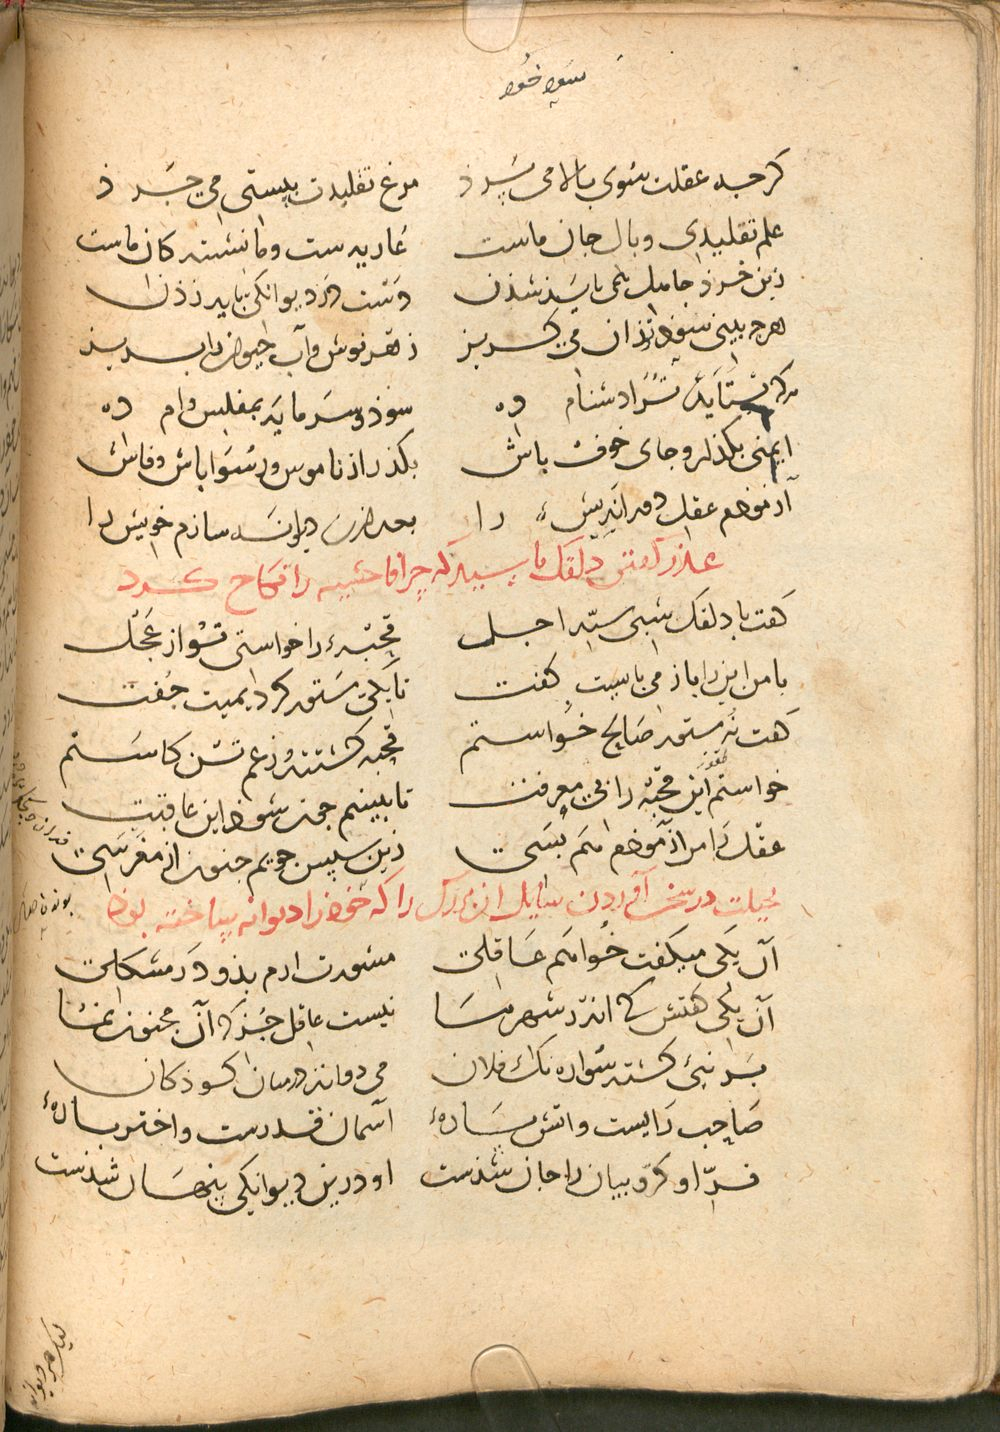 سود خود
گرچه عقلت سوی بالا می پرد مرغ تقلیدت بپستی می چرد
علم تقلیدی وبال جان ماست عاریه ست و ما نشسته کان ماست
زین خرد جاهل همی باید شدن دست در دیوانگی باید زدن
هرچه بینی سود خود زان می گریز زهر نوش و آب حیوان را بریز
هرکه بستاید ترا دشنام ده سود و سرمایه بمفلس وام ده
ایمنی بگذار و جای خوف باش بگذر از ناموس و رسوا باش و فاش
آزمودم عقل دور اندیش را بعد ازین دیوانه سازم خویش را
عذر گفتن دلقک با سید که چرا فاحشه را نکاح کرد
گفت با دلقک شبی سید اجل قحبۀ را خواستی تو از عجل
با من این را باز می بایست گفت تا یکی مستور کردیمیت جفت
گفت نه مستور صالح خواستم قحبه گشتند و ز غم تن کاستم
خواستم این قحبه را بی معرفت تا ببینم چون شود این عاقبت
عقل را من آزمودم هم بسی زین سپس جویم جنون را مغرسی
حیلت در سخن آوردن سایل آن بزرگ را که خود را دیوانه ساخته بود
آن یکی میگفت خواهم عاقلی مشورت آرم بذو در مشکلی
آن یکی گفتش که اندر شهر ما نیست عاقل جز که آن مجنون نما
بر نیی گشته سواره نک فلان می دواند در میان کوذکان
صاحب رایست و آتش پارۀ آسمان قدرست و اختر بارۀ
فرّ او کرّوبیان را جان شذست او درین دیوانگی پنهان شذست
لیک هر دیوانه